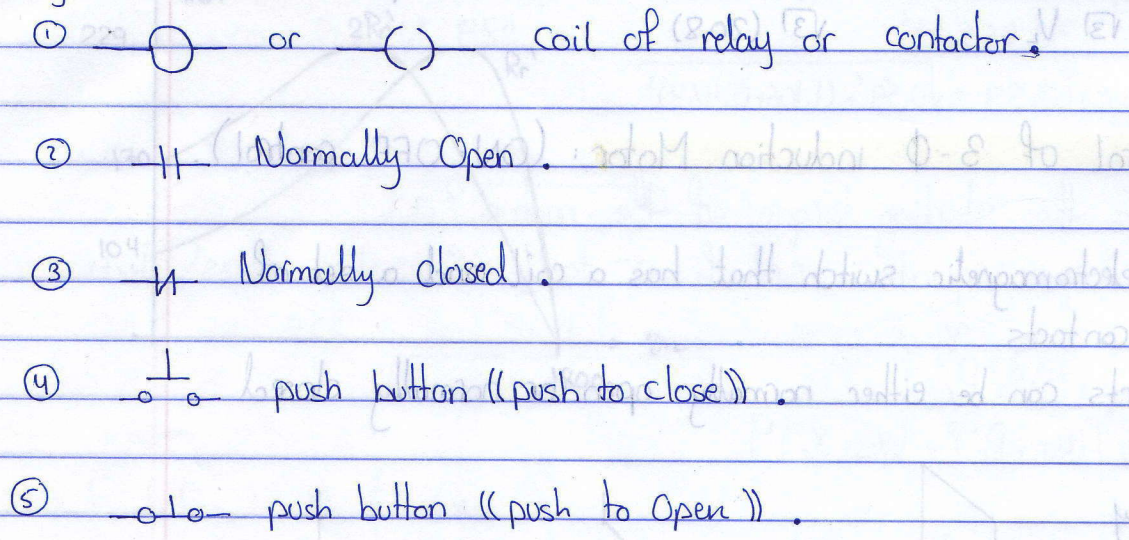 ① or coil of relay or contactor.
② Normally Open.
③ Normally closed.
④ push button ((push to close)).
⑤ push button ((push to Open)).